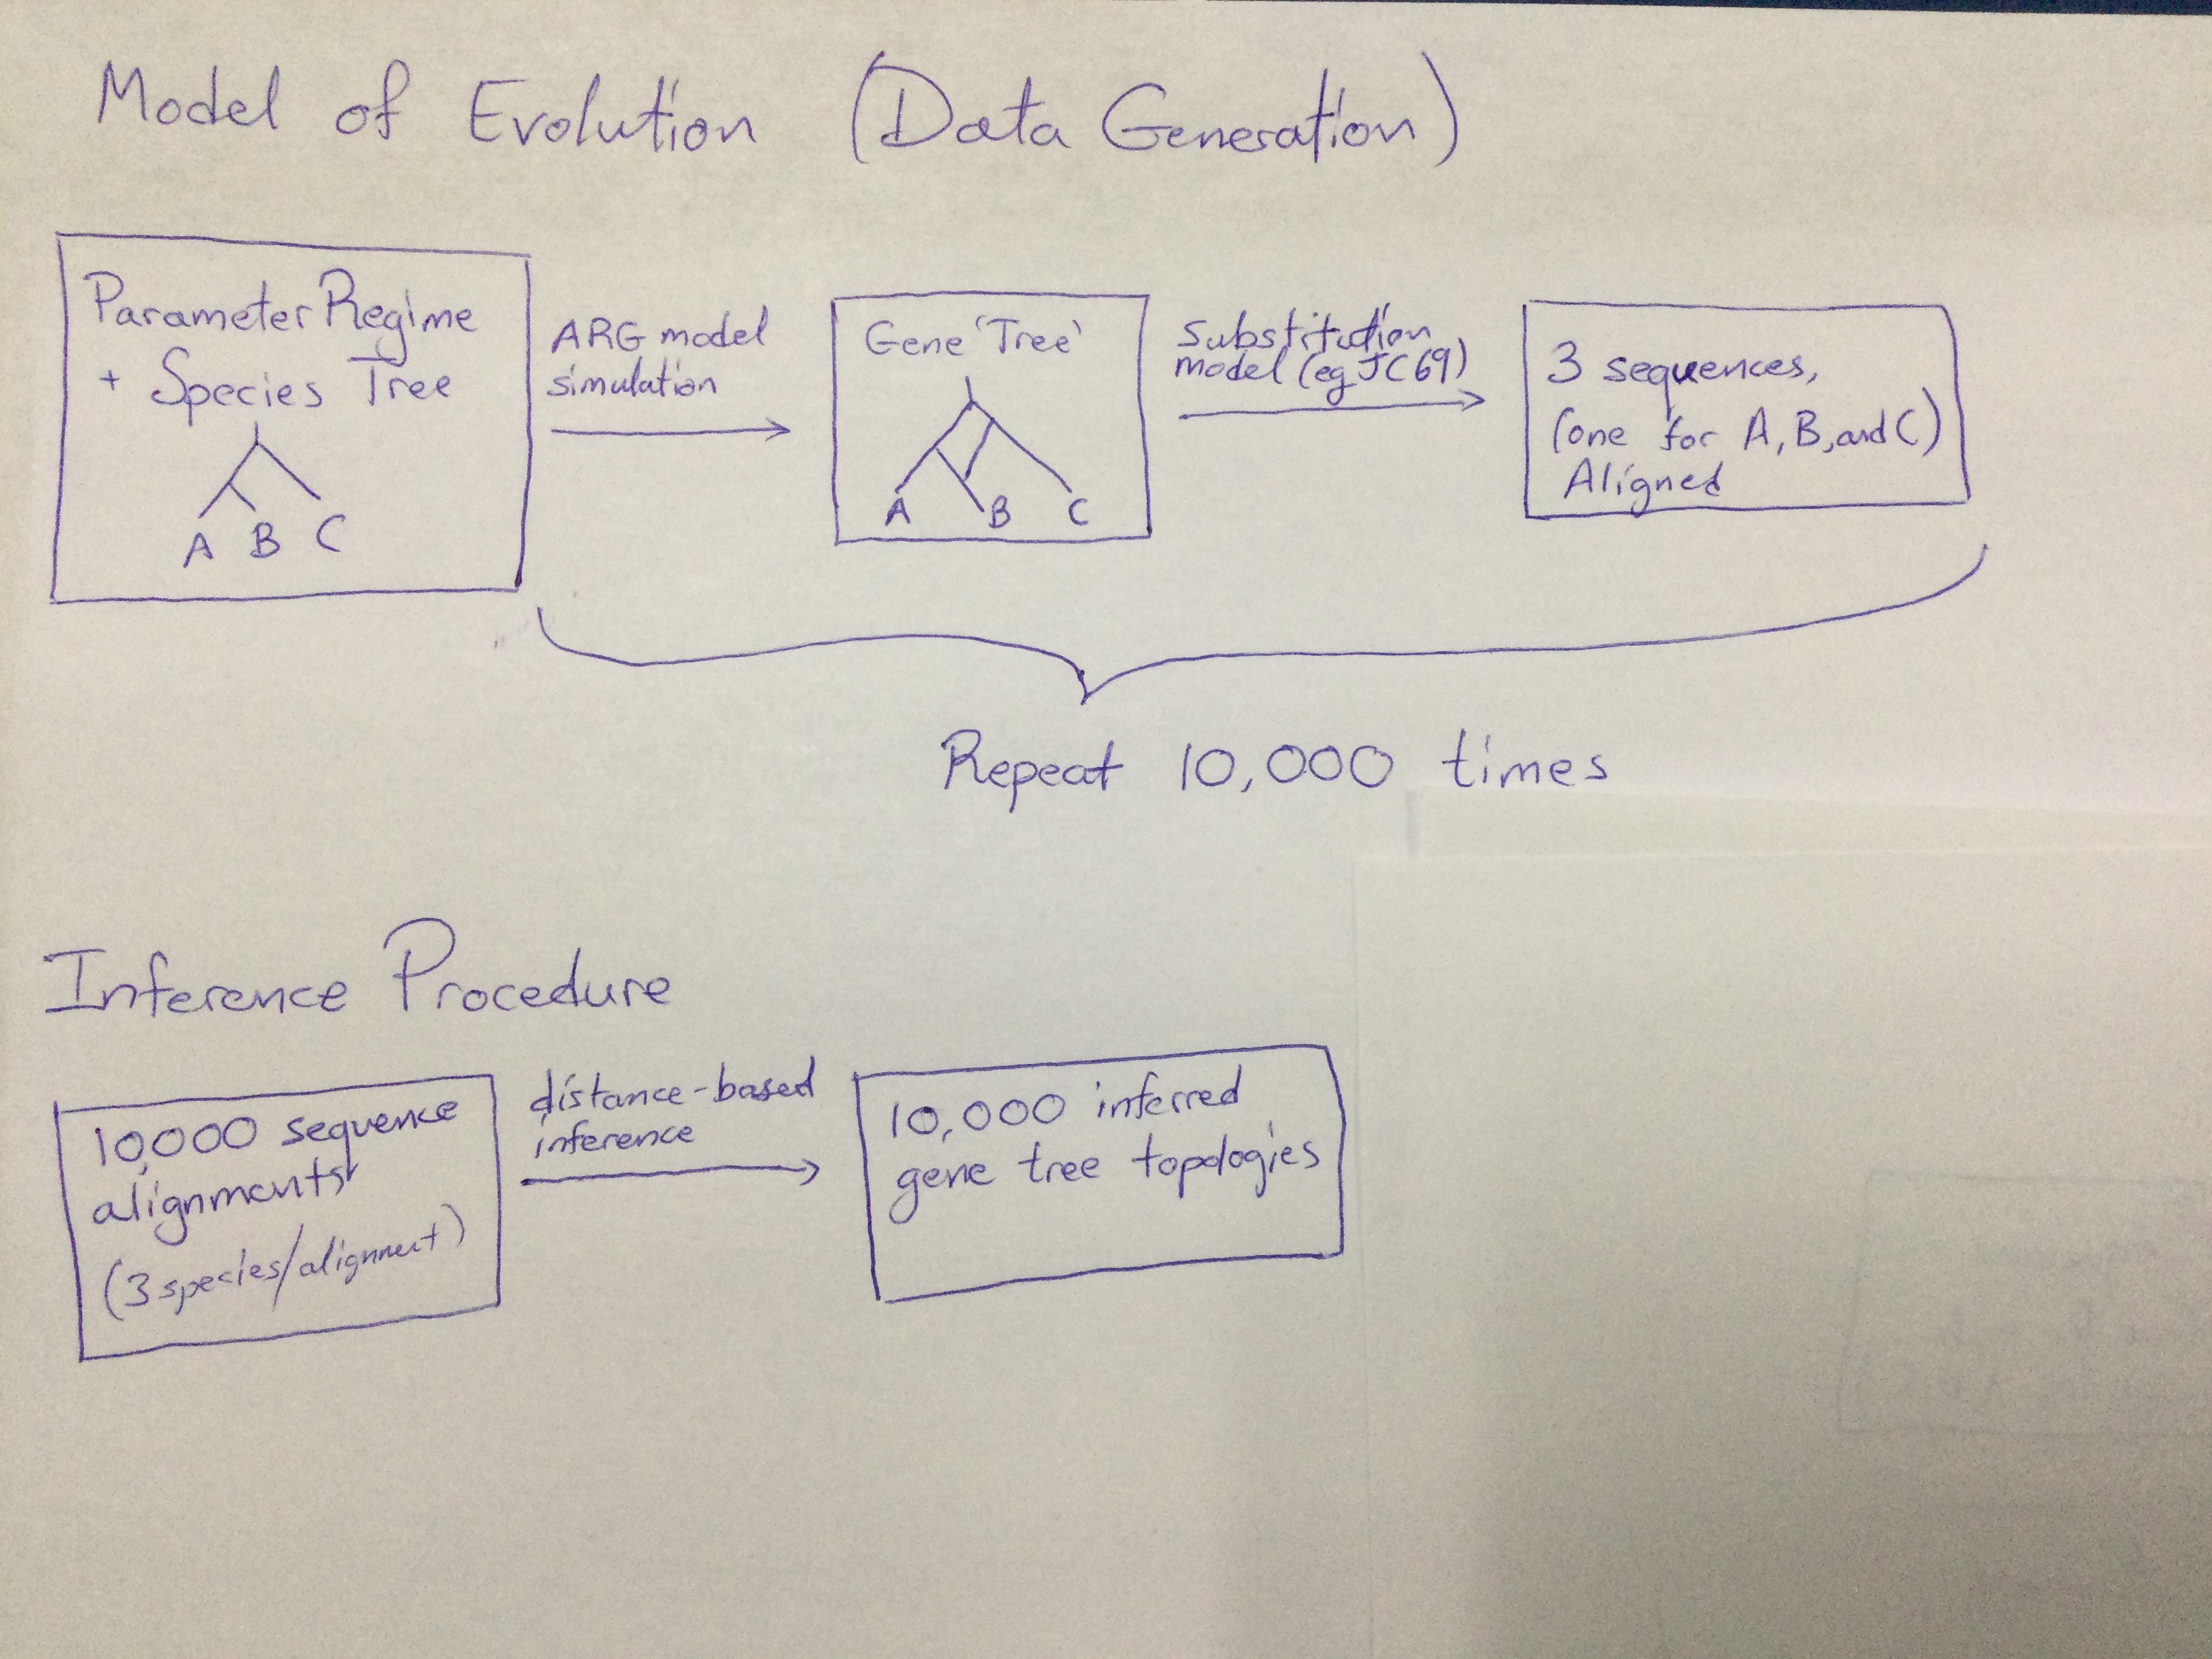 Model of Evolution (Data Generation)
Parameter Regime
+ Species Tree
A B C
ARG model
simulation
Gene 'Tree'
A B C
Substitution
model (eg JC69)
3 sequences,
(one for A, B, and C)
Aligned
Repeat 10,000 times
Inference Procedure
10,000 sequence
alignments
(3 species/alignment)
distance-based
inference
10,000 inferred
gene tree topologies